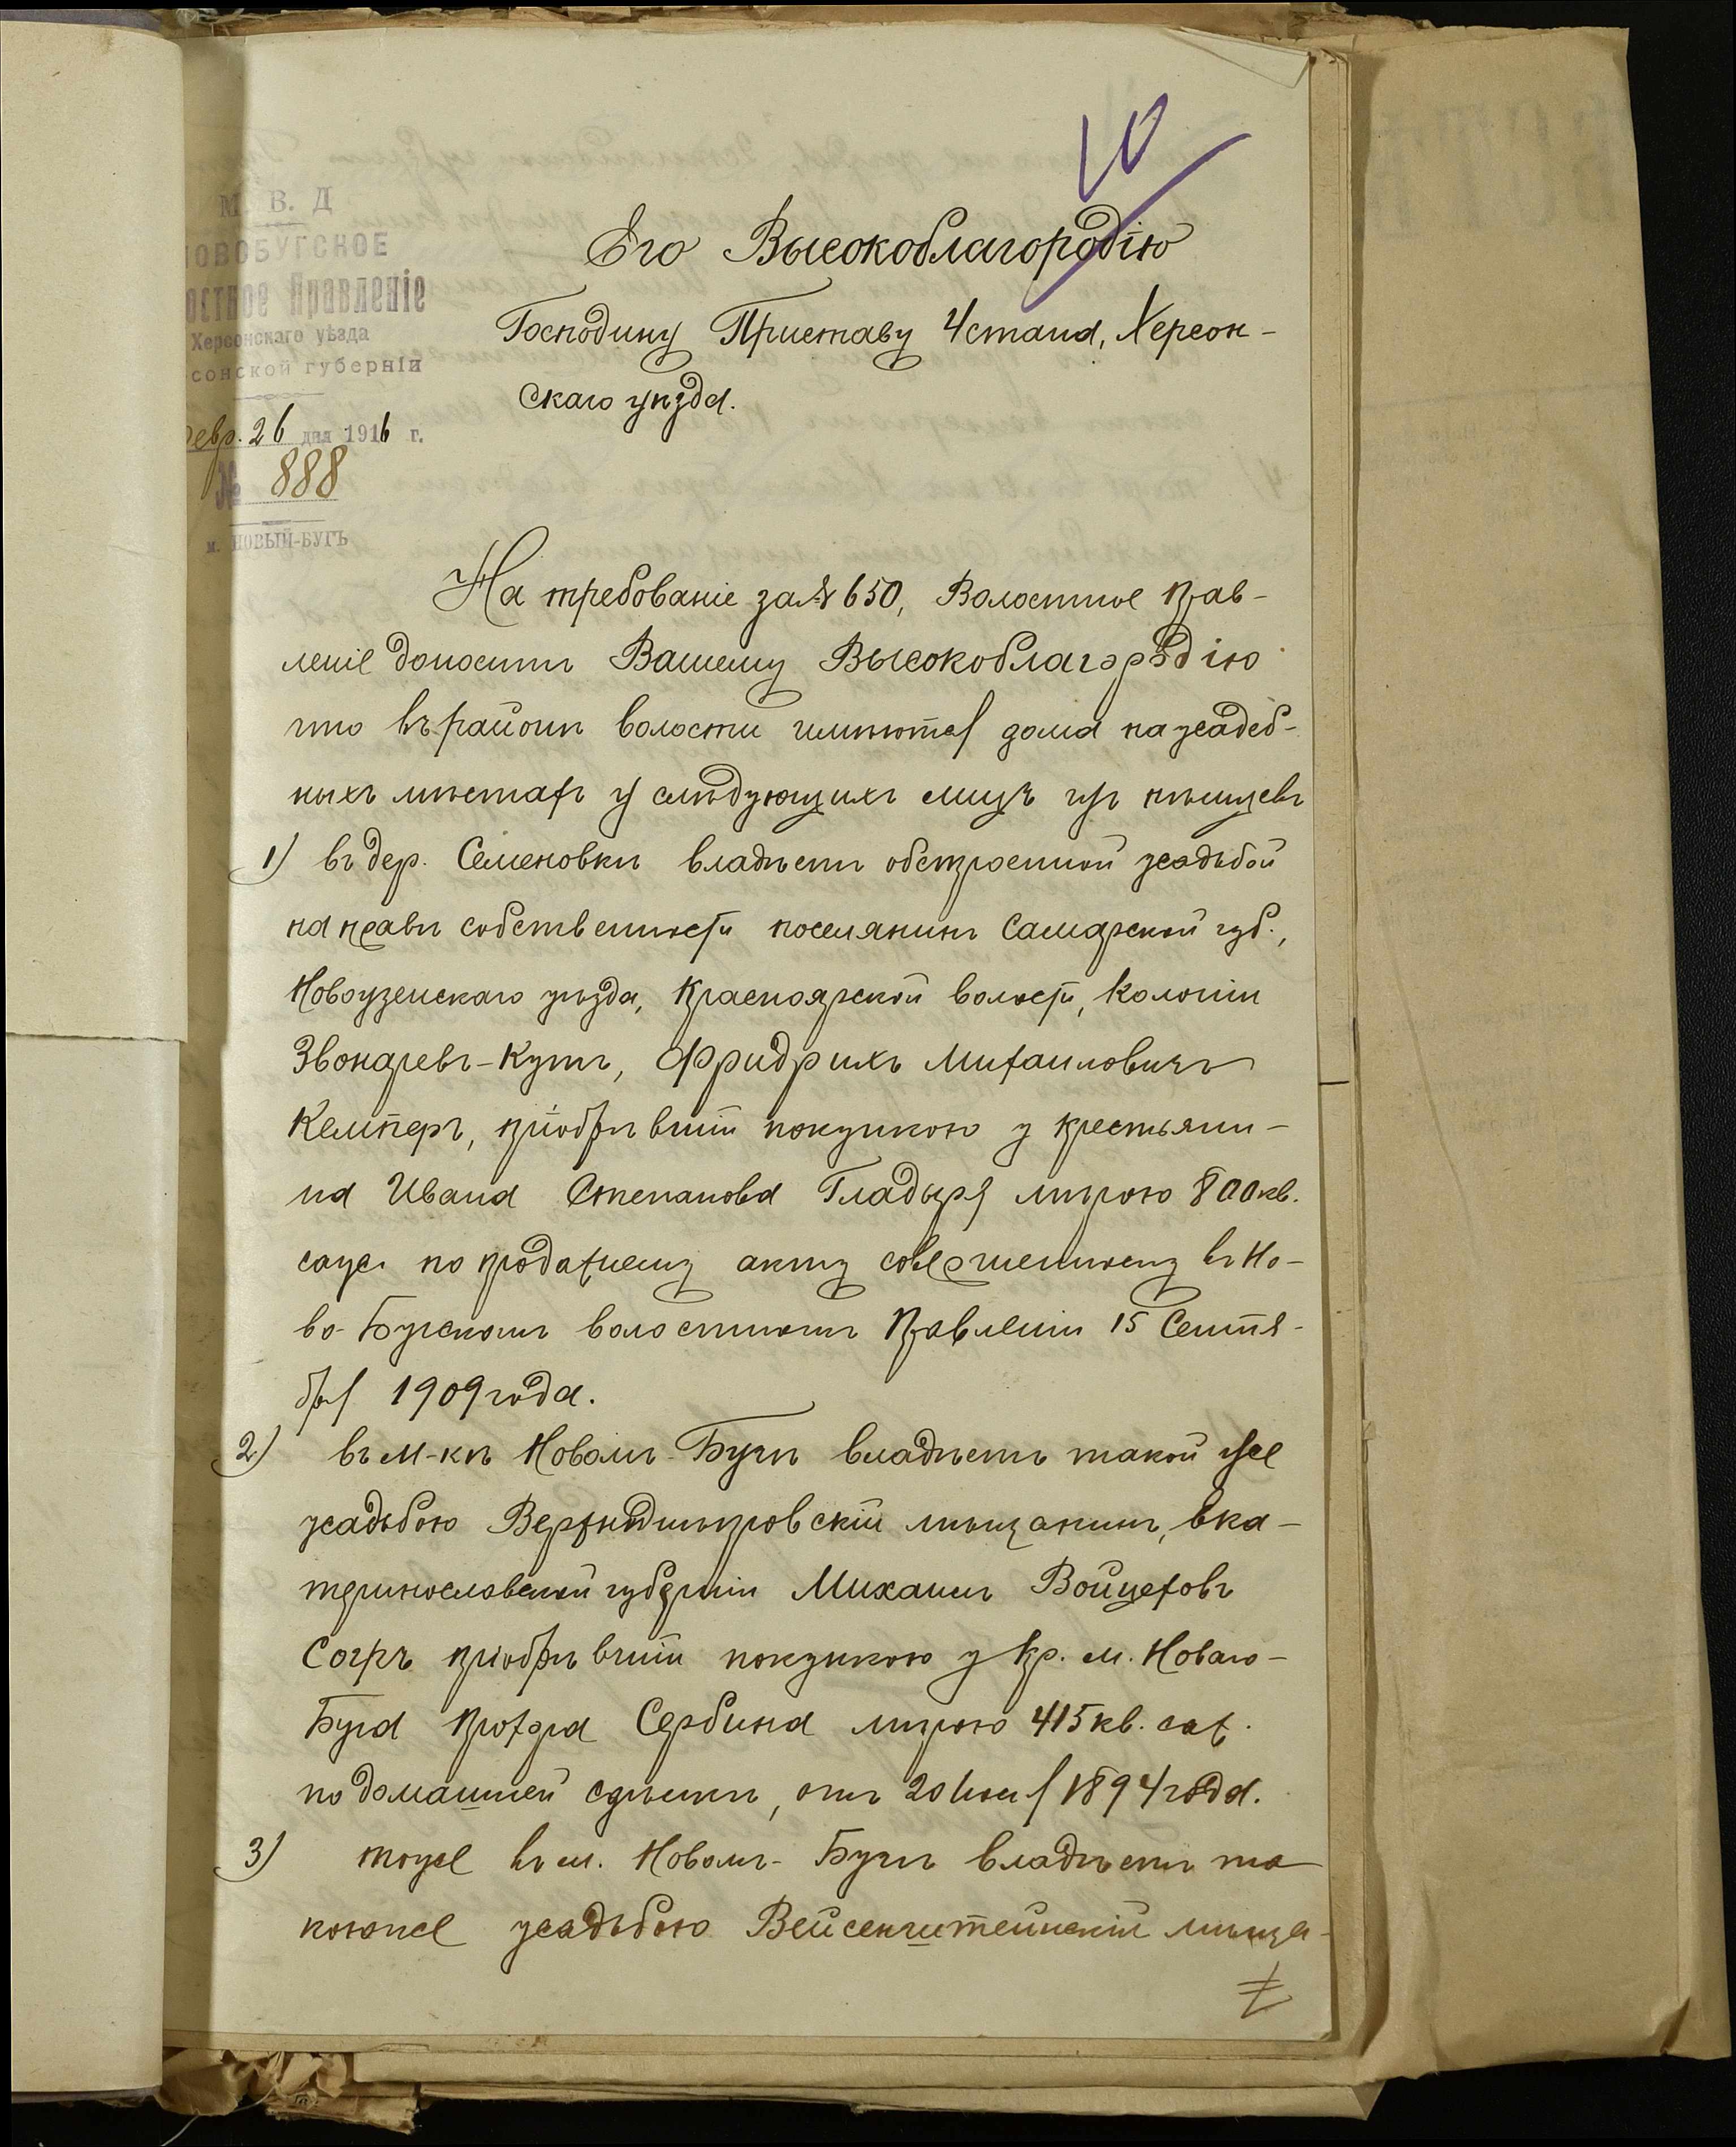 10
М. В. Д
НОВОБУГСКОЕ
остное Правленіе
Херсонскаго уѣзда
сонской губерніи
Февр. 26 дня 1916 г.
№ 888
м. НОВЫЙ-БУГЪ
Его Высокоблагородію
Господину Приставу 4 стана, Херсон-
скаго уѣзда.
На требованіе за № 650, Волостное Прав-
леніе доноситъ Вашему Высокоблагородію
что въ районѣ волости имѣются дома на усадеб-
ныхъ мѣстахъ у слѣдующихъ лицъ изъ нѣмцевъ
1) въ дер. Семеновкѣ владѣетъ обстроенной усадьбой
на правѣ собственности поселянинъ Самарской губ.,
Новоузенскаго уѣзда, Красноярской волости, Колоніи
Звонаревъ-Кутъ, Фридрихъ Михаиловичъ
Кемперъ, пріобрѣвшій покупкою у крестьяни-
на Ивана Степанова Гладыря мѣрою 800 кв.
саж. по продажнему акту совершенному въ Но-
во-Бугскомъ волостномъ Правленіи 15 Сентя-
бря 1909 года.
2) въ м-кѣ Новомъ-Бугѣ владѣетъ такой же
усадьбою Верхнеднѣпровскій мѣщанинъ, Ека-
теринославской губерніи Михаилъ Войцеховъ
пріобрѣвшій покупкою у кр. м. Новаго-
Буга Прохора Сербина мѣрою 415 кв. саж.
по домашней сдѣлкѣ, отъ 20 1894 года.
3) тоже въ м. Новомъ-Бугѣ владѣетъ та
коюже усадьбою Вейсенштейнскій мѣща-